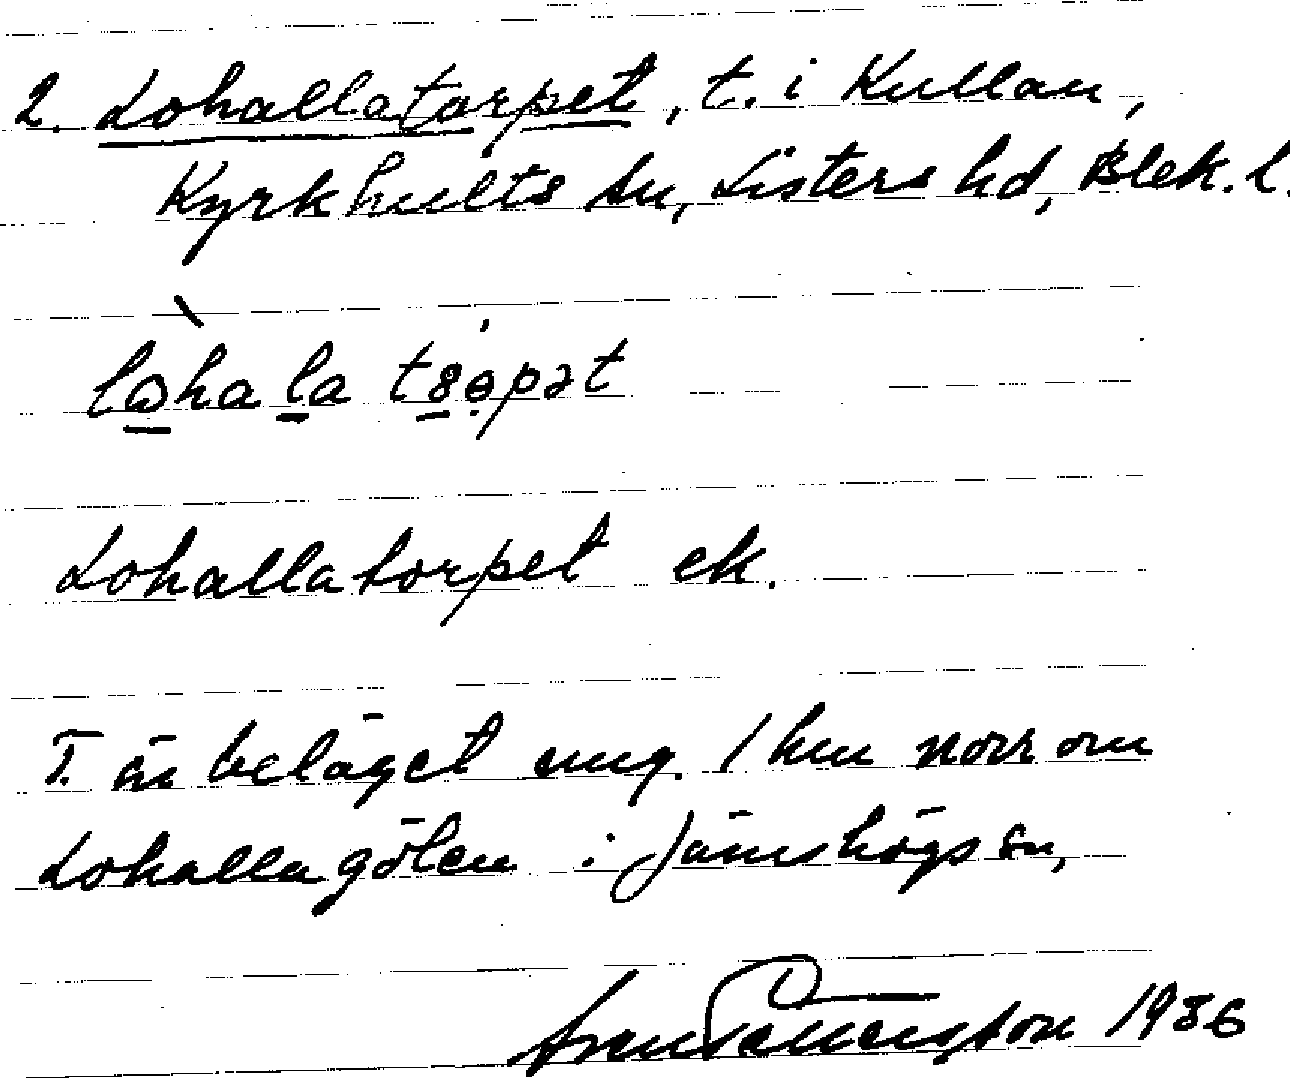 2. Lohallatorpet, t. i Kullan,
Kyrkhults sn, Listers hd, Blek. l.
Lohallatorpet ek.
T. är beläget ung. 1 km norr om
Lohallagölen i Jämshögs sn,
1936